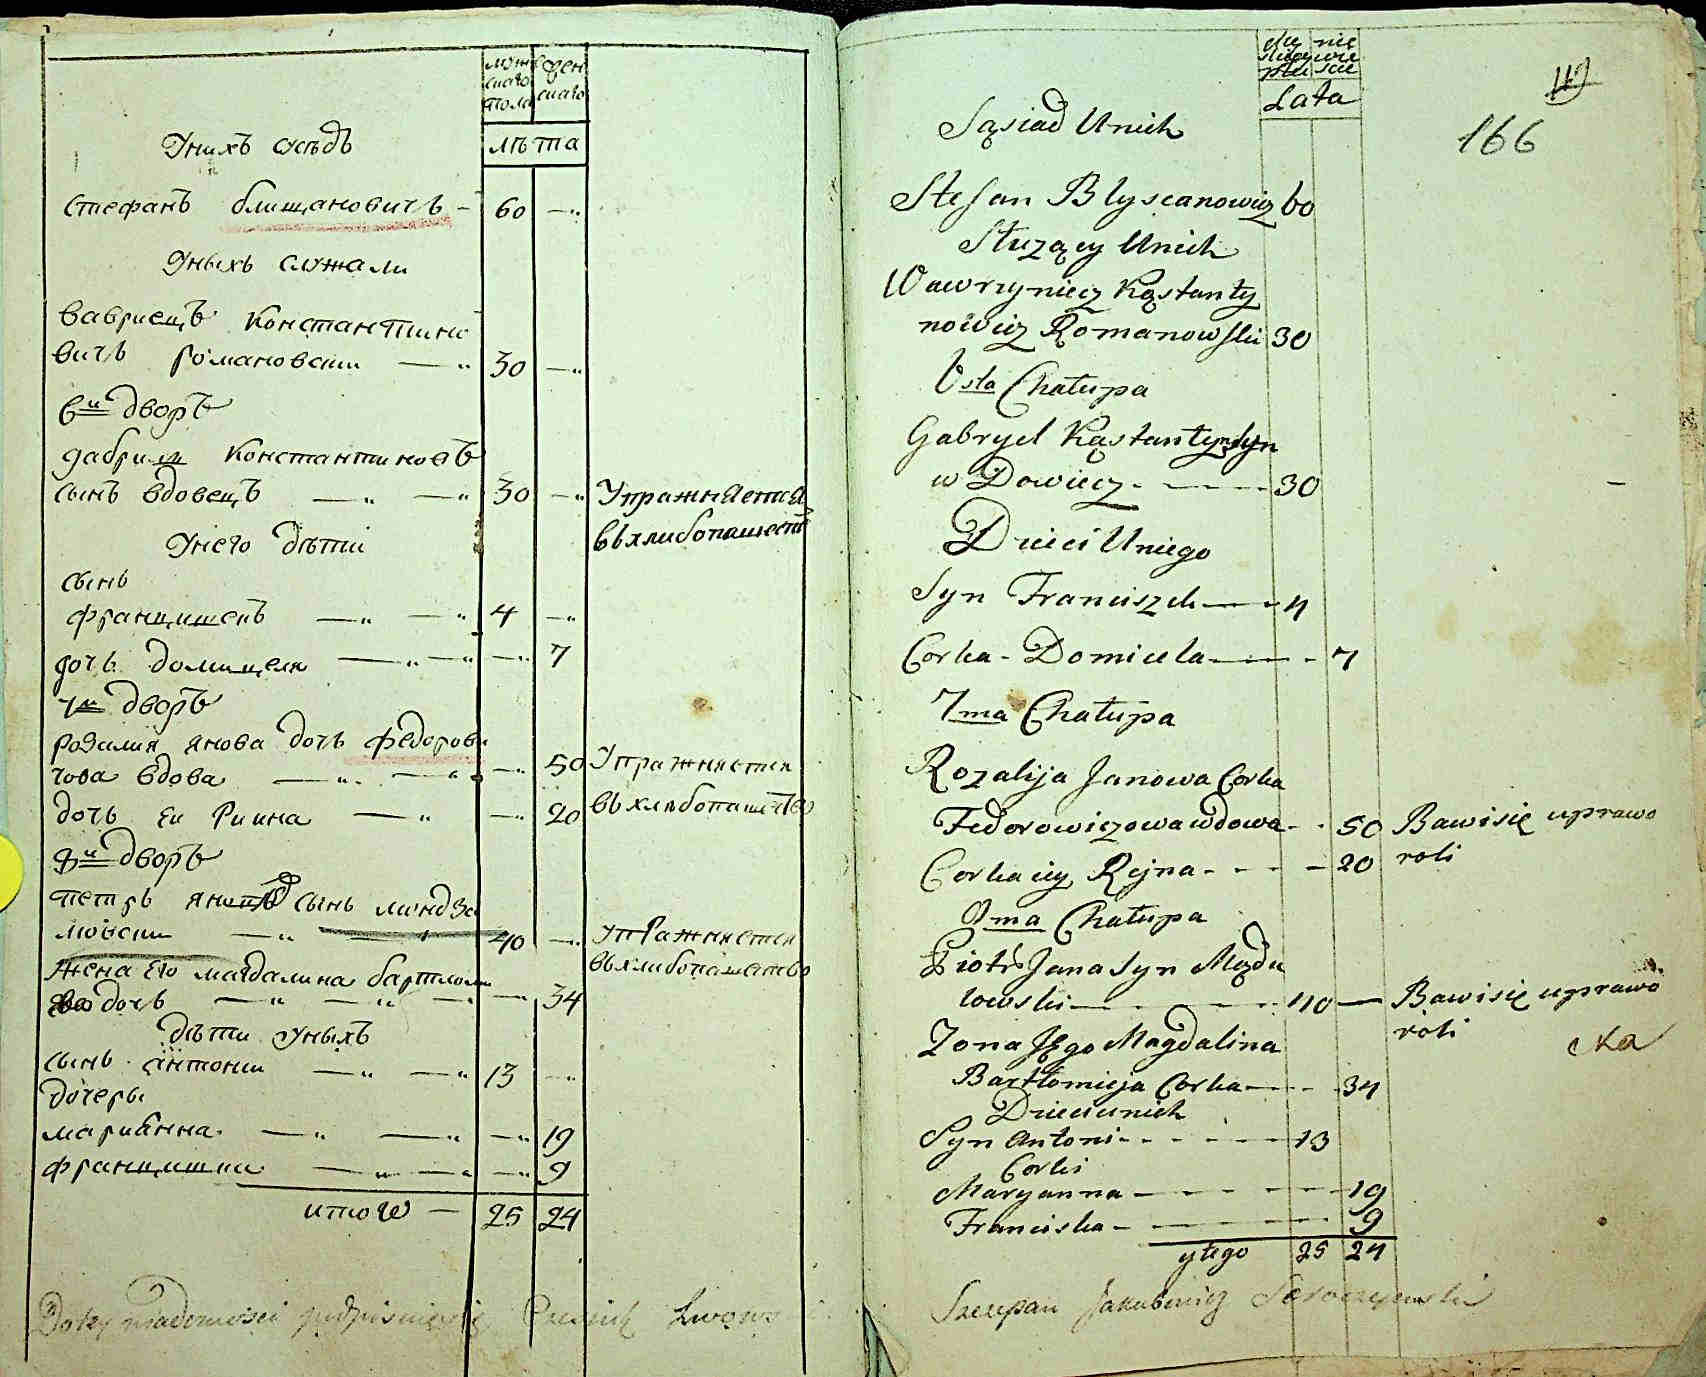 мужскаго пола
женскаго
лѣта
Унихъ сусѣдъ
стефанъ блищановичъ - 60
Уныхъ служали
вавриецъ Константино
вичъ романовски 30
6й дворъ
габриель Константиновъ
сынъ вдовецъ 30 Упражняется
въ хлибопашестве
Унего дѣти
сынъ
францишекъ 4
дочь домицеля 7
7й дворъ
розалия янова дочь федорови
чова вдова 50 Упражняется
дочь ей Рина 20 въ хлѣбопашество
8й дворъ
петръ сынъ
40 упражняется
жена его магдалина бартломе
ева дочь 34 въ хлибопашество
дѣти уныхъ
сынъ антони 13
дочеры
марианна 19
францишка 9
итого 25 24
podpisuięsię
męzkie
Lata
Sąsiad Unich
166
Stefan Blyscanowicz 60
Służący Unich
Wawrzyniecz Kąstanty
nowicz Romanowski 30
6sta Chałupa
Gabryel Kąstantyn syn
w Dowiecz 30
Dzieci Uniego
Syn Franciszek 4
Corka - Domicela 7
7ma Chałupa
Rozalija Janowa Corka
Fedorowiczowa wdowa 50 Bawisię uprawo
Corka iey Rejna 20 roli
8ma Chałupa
Piotr Jana Syn Mędu
lowski 40 Bawisię uprawo
roli
ska
Zona Jego Magdalina
Bartłomieja Corka 34
Dzieciunich
Syn Antoni 13
Corki
Maryanna 19
Franciska 9
ytego 25 24
Szczepan Jakubowicz